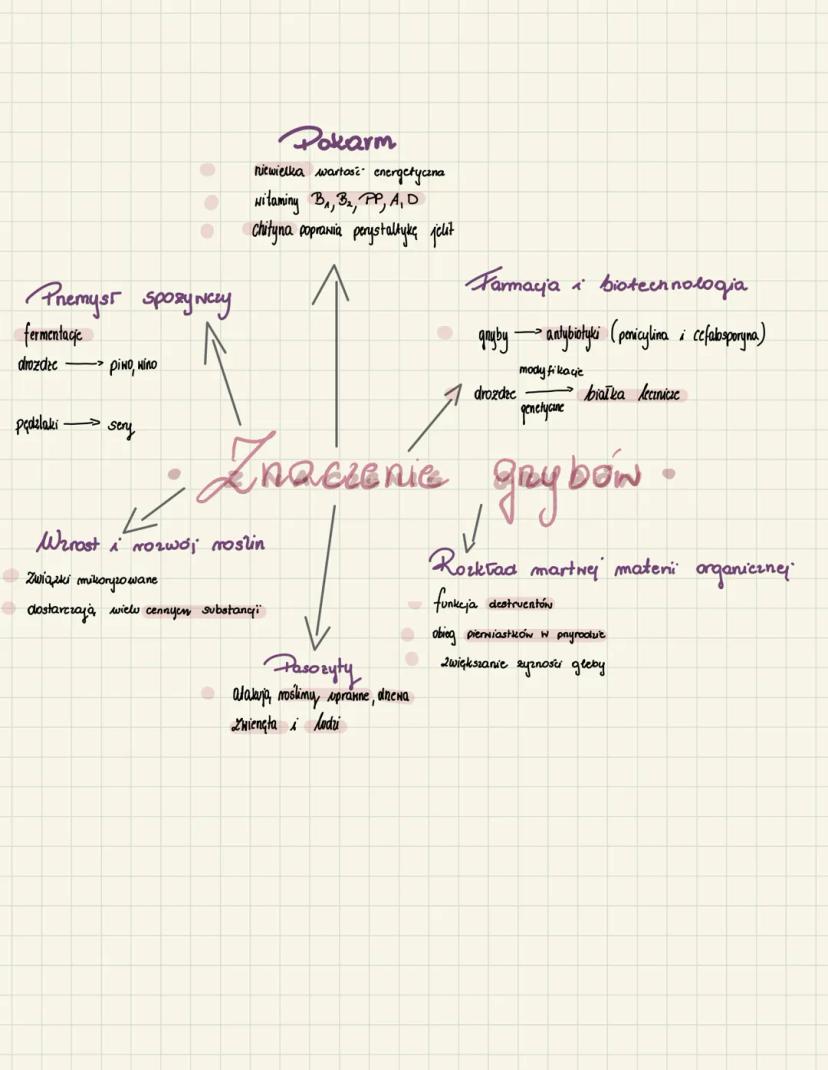 Pokarm
niewielka wartość energetyczna
witaminy B₁, B₂, PP, A, D
chityna poprawia perystaltykę jelit
Przemysł spożywczy
fermentacje
drożdże → piwo, wino
pędzlaki → sery
Farmacja i biotechnologia
grzyby → antybiotyki (penicylina i cefalosporyna)
modyfikacje
drożdże → białka lecznicze
genetyczne
Znaczenie grzybów
Wzrost i rozwój roślin
związki mikoryzowane
dostarczają wielu cennych substancji
Rozkład martwej materii organicznej
funkcja destruentów
obieg pierwiastków w przyrodzie
zwiększanie żyzności gleby
Pasożyty
atakują rośliny uprawne, drzewa
zwierzęta i ludzi